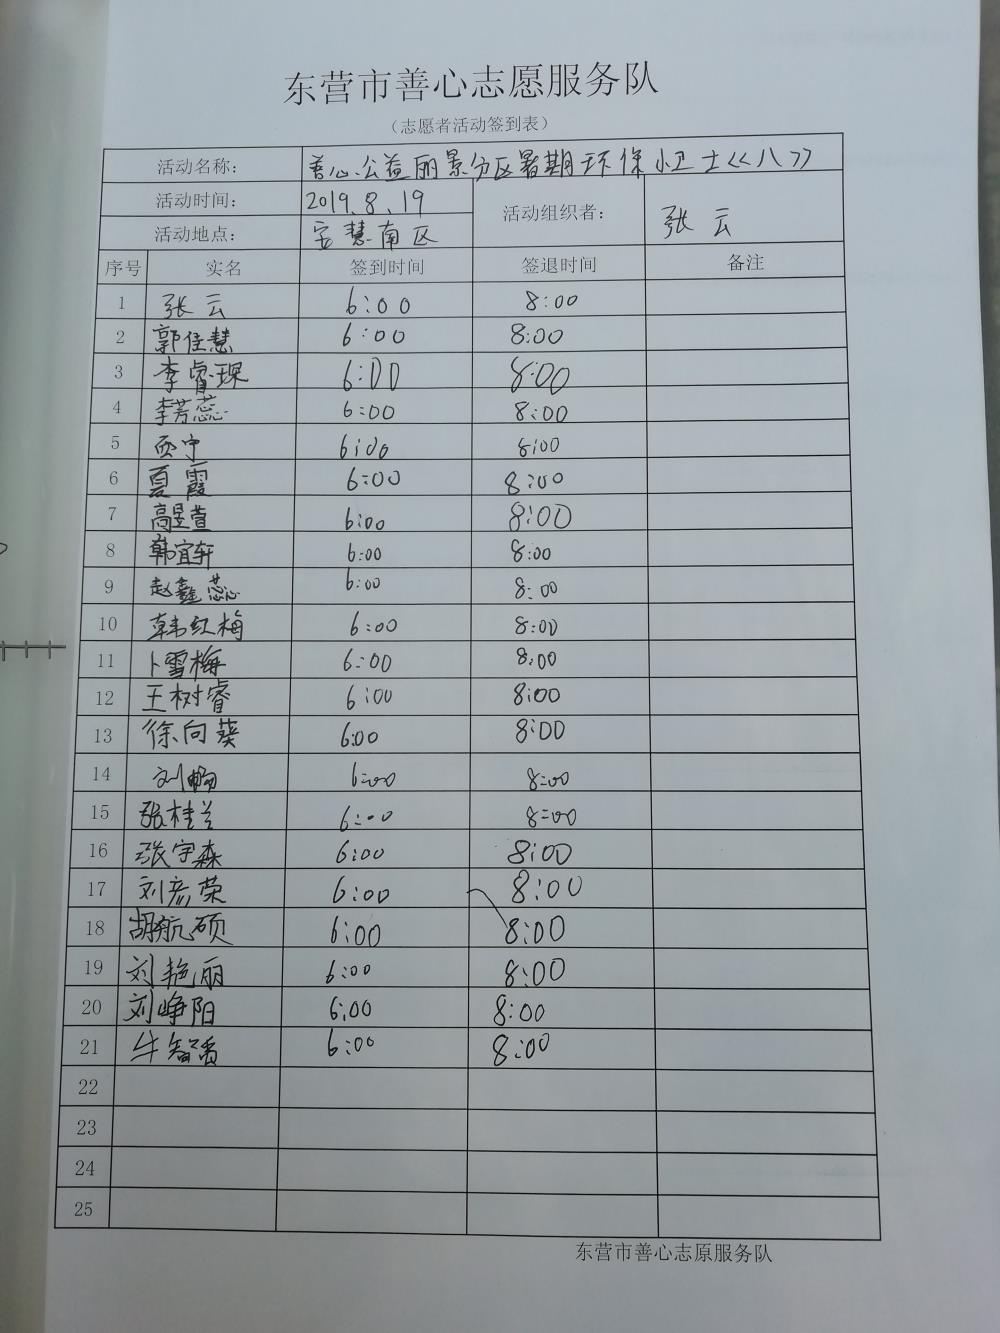 东营市善心志愿服务队
（志愿者活动签到表）
活动名称： 善心公益丽景分区暑期环保小卫士《八》
活动时间： 2019.8.19 活动组织者： 张云
活动地点： 安慧南区
序号 实名 签到时间 签退时间 备注
1 张云 6:00 8:00
2 郭佳慧 6:00 8:00
3 李睿琛 6:00 8:00
4 李芳蕊 6:00 8:00
5 6:00 8:00
6 夏霞 6:00 8:00
7 高昱萱 6:00 8:00
8 韩宜轩 6:00 8:00
9 赵鑫蕊 6:00 8:00
10 韩红梅 6:00 8:00
11 卜雪梅 6:00 8:00
12 王树睿 6:00 8:00
13 徐向葵 6:00 8:00
14 刘畅 6:00 8:00
15 张桂兰 6:00 8:00
16 张宇森 6:00 8:00
17 刘彦荣 6:00 8:00
18 胡航硕 6:00 8:00
19 刘艳丽 6:00 8:00
20 刘峥阳 6:00 8:00
21 牛智 6:00 8:00
22
23
24
25
东营市善心志原服务队